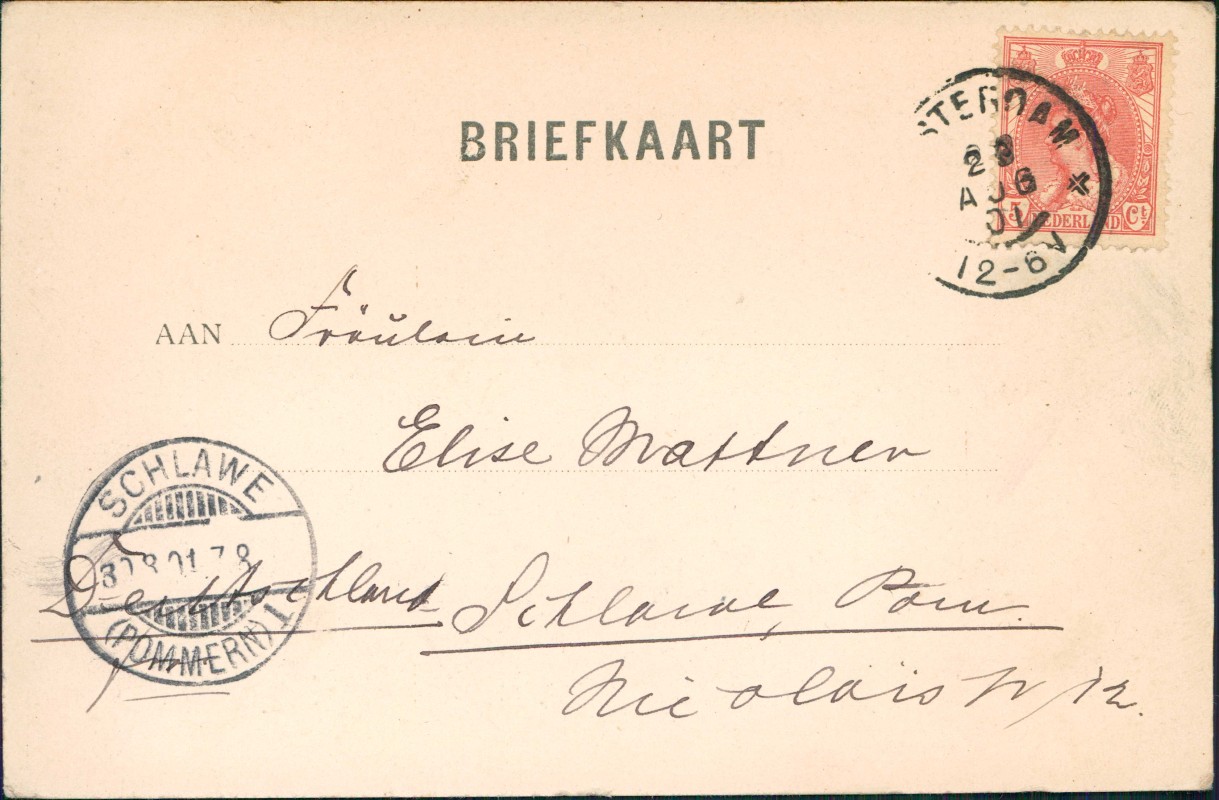 BRIEFKAART
STERDAM
28
AUG
01
12-6V
5 NEDERLAND Ct
AAN Fräulein
Elise Mattner
SCHLAWE
30.8.01.7.8
(POMMERN) 1
Deutschland
Schlawe, Pom.
Nicolaistr 12.